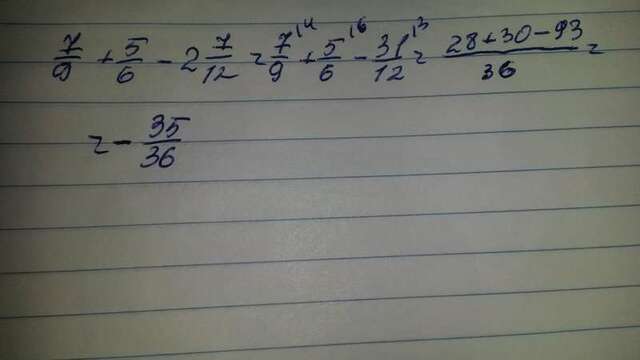 7/9 + 5/6 - 2 7/12 = 7/9 \4 + 5/6 \6 - 31/12 \3 = 28+30-93/36 =
= - 35/36